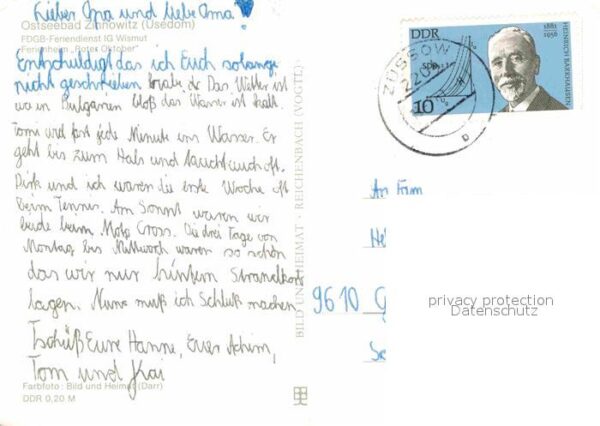 Lieber Opa und liebe Oma!
Ostseebad Zinnowitz (Usedom)
FDGB-Feriendienst IG Wismut
Ferienheim „Roter Oktober“
Entschuldigt das ich Euch so lange
nicht geschrieben habe. Das Wetter ist
wie in Bulgarien bloß das Wasser ist kalt.
Tom wird fast jede Minute ins Wasser. Er
geht bis zum Hals und taucht auch oft.
Dirk und ich waren die erste Woche oft
beim Tennis. Am Sonnt. waren wir
beide beim Moto Cross. Die drei Tage von
Montag bis Mittwoch waren so schön
das wir nur hinterm Strandkorb
lagen. Nun muß ich Schluß machen
Tschüß Eure Hanne, Euer Achim,
Tom und Kai
Farbfoto: Bild und Heimat (Darr)
DDR 0,20 M
BILD UND HEIMAT · REICHENBACH (VOGTL)
DDR
1881
1956
HEINRICH BARKHAUSEN
10
ZÜSSOW
An Fam
9610 G
privacy protection
Datenschutz